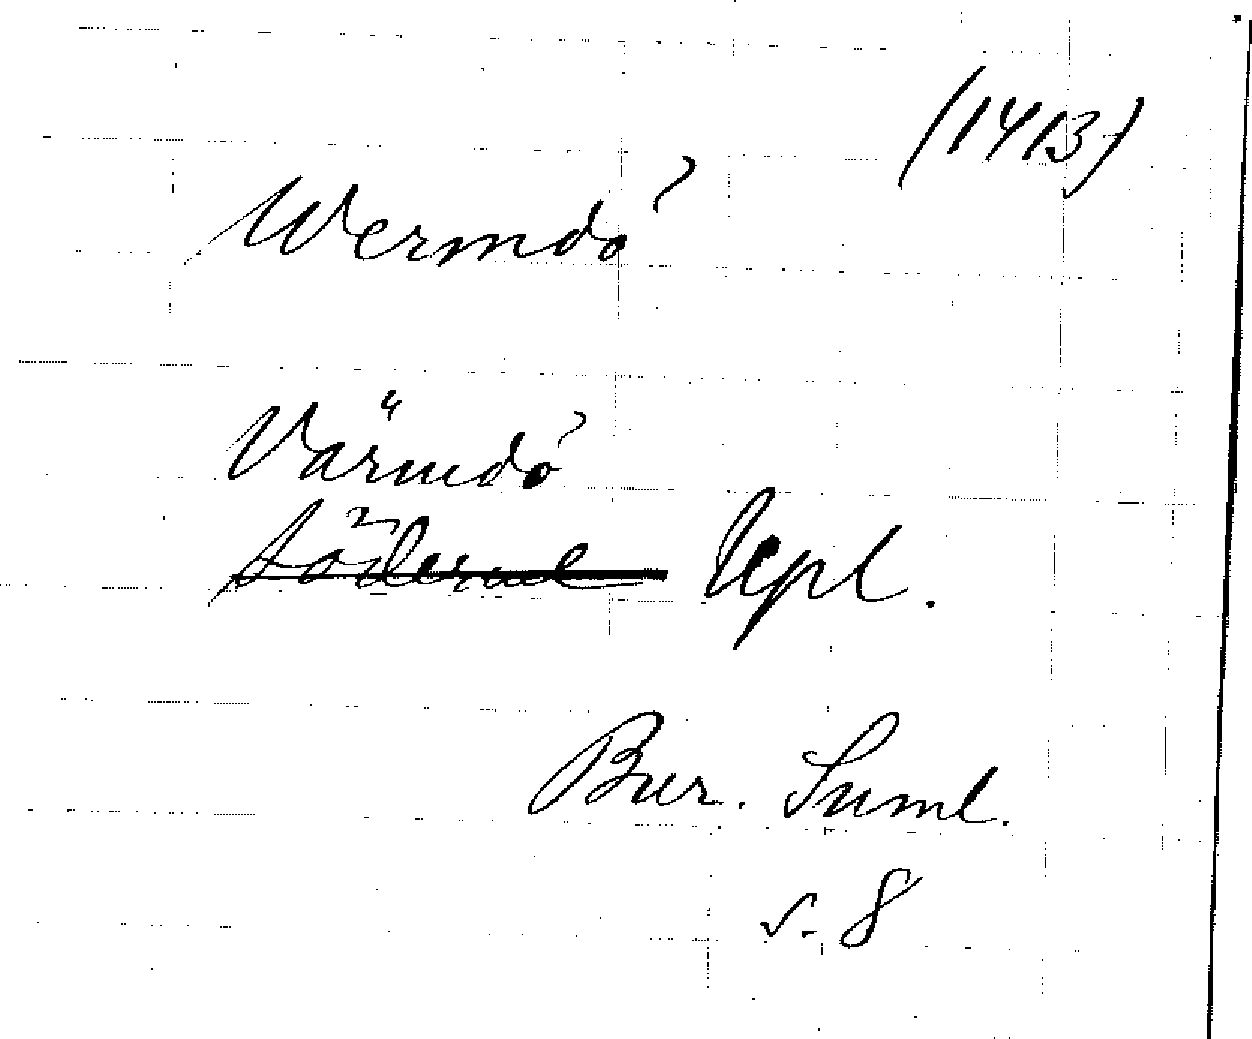 (1413)
Wermdö
Värmdö
Söderml Upl.
Bur. Suml.
s. 8